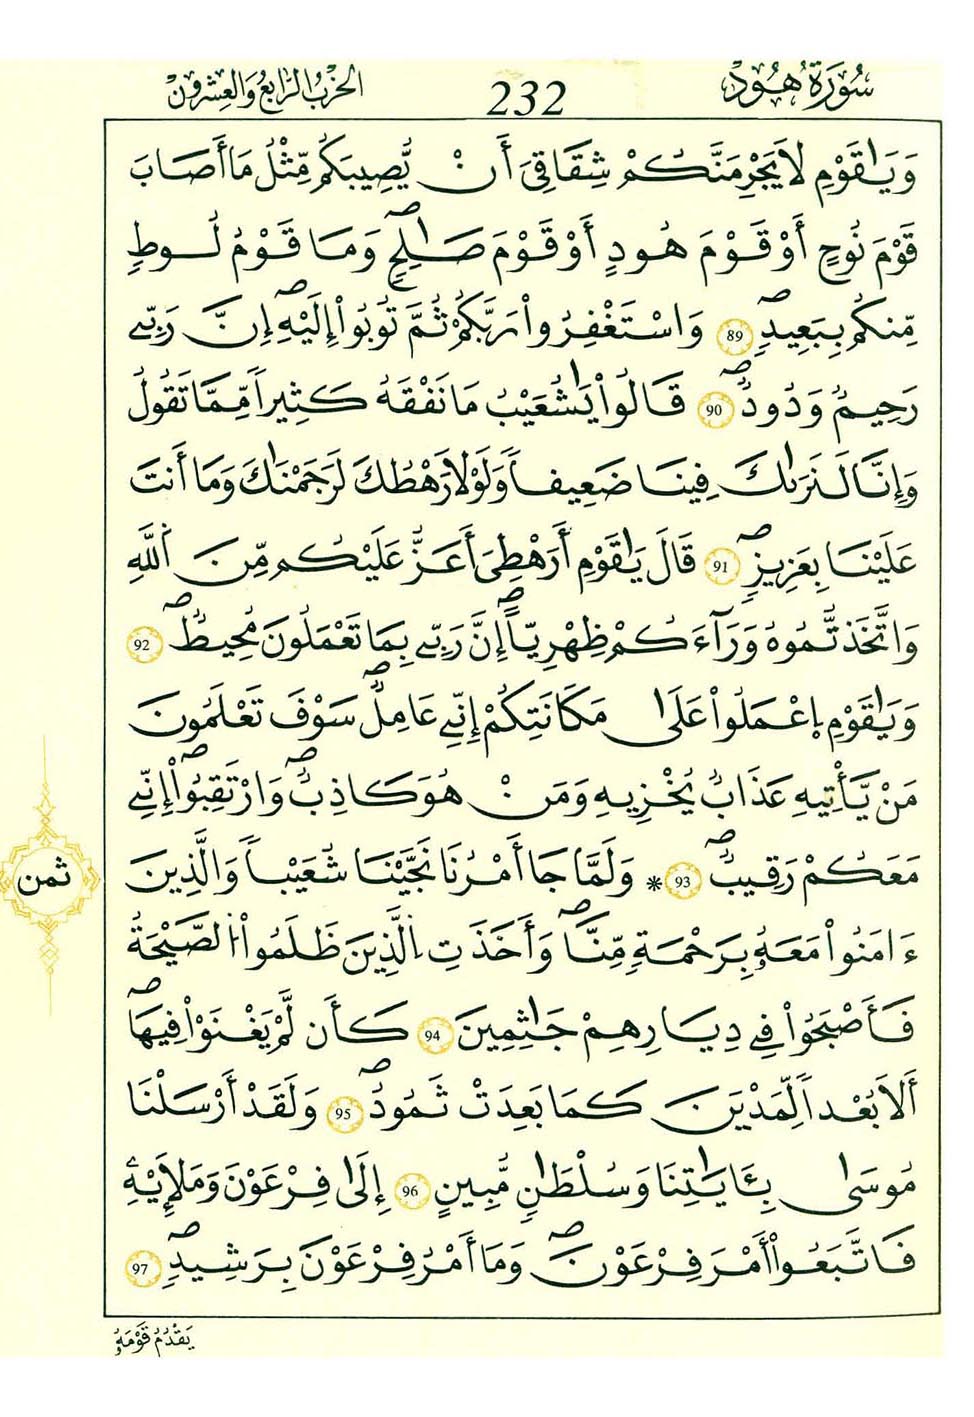 سُورَةُ هُودٍ 232 الحِزْبُ الرَّابِعُ وَالعِشْرُونَ
وَيَٰقَوْمِ لَا يَجْرِمَنَّكُمْ شِقَاقِيَ أَنْ يُّصِيبَكُم مِّثْلُ مَا أَصَابَ
قَوْمَ نُوحٍ أَوْ قَوْمَ هُودٍ أَوْ قَوْمَ صَٰلِحٍۖ وَمَا قَوْمُ لُوطٍ
مِّنكُم بِبَعِيدٍۖ 89 وَاسْتَغْفِرُواْ رَبَّكُمْ ثُمَّ تُوبُواْ إِلَيْهِۖ إِنَّ رَبِّے
رَحِيمٌ وَدُودٌۖ 90 قَالُواْ يَٰشُعَيْبُ مَا نَفْقَهُ كَثِيراً مِّمَّا تَقُولُ
وَإِنَّا لَنَرَىٰكَ فِينَا ضَعِيفاً وَلَوْلَا رَهْطُكَ لَرَجَمْنَٰكَ وَمَا أَنتَ
عَلَيْنَا بِعَزِيزٍۖ 91 قَالَ يَٰقَوْمِ أَرَهْطِيَ أَعَزُّ عَلَيْكُم مِّنَ اَ۬للَّهِ
وَاتَّخَذتُّمُوهُ وَرَآءَكُمْ ظِهْرِيّاًۖ إِنَّ رَبِّے بِمَا تَعْمَلُونَ مُحِيطٌۖ 92
وَيَٰقَوْمِ اِ۪عْمَلُواْ عَلَىٰ مَكَانَتِكُمْ إِنِّے عَامِلٌۖ سَوْفَ تَعْلَمُونَ
مَنْ يَّأْتِيهِ عَذَابٌ يُخْزِيهِ وَمَنْ هُوَ كَاذِبٌۖ وَارْتَقِبُواْۖ إِنِّے
مَعَكُمْ رَقِيبٌۖ 93 * وَلَمَّا جَا أَمْرُنَا نَجَّيْنَا شُعَيْباً وَالَّذِينَ
ثمن
ءَامَنُواْ مَعَهُۥ بِرَحْمَةٍ مِّنَّاۖ وَأَخَذَتِ اِ۬لَّذِينَ ظَلَمُواْ اُ۬لصَّيْحَةُ
فَأَصْبَحُواْ فِے دِيَارِهِمْ جَٰثِمِينَ 94 كَأَن لَّمْ يَغْنَوْاْ فِيهَاۖ
أَلَا بُعْداً لِّمَدْيَنَ كَمَا بَعِدَتْ ثَمُودُۖ 95 وَلَقَدْ أَرْسَلْنَا
مُوسَىٰ بِـَٔايَٰتِنَا وَسُلْطَٰنٍ مُّبِينٍ 96 إِلَىٰ فِرْعَوْنَ وَمَلَإِيْهِۦ
فَاتَّبَعُواْ أَمْرَ فِرْعَوْنَۖ وَمَا أَمْرُ فِرْعَوْنَ بِرَشِيدٍۖ 97
يَقْدُمُ قَوْمَهُۥ